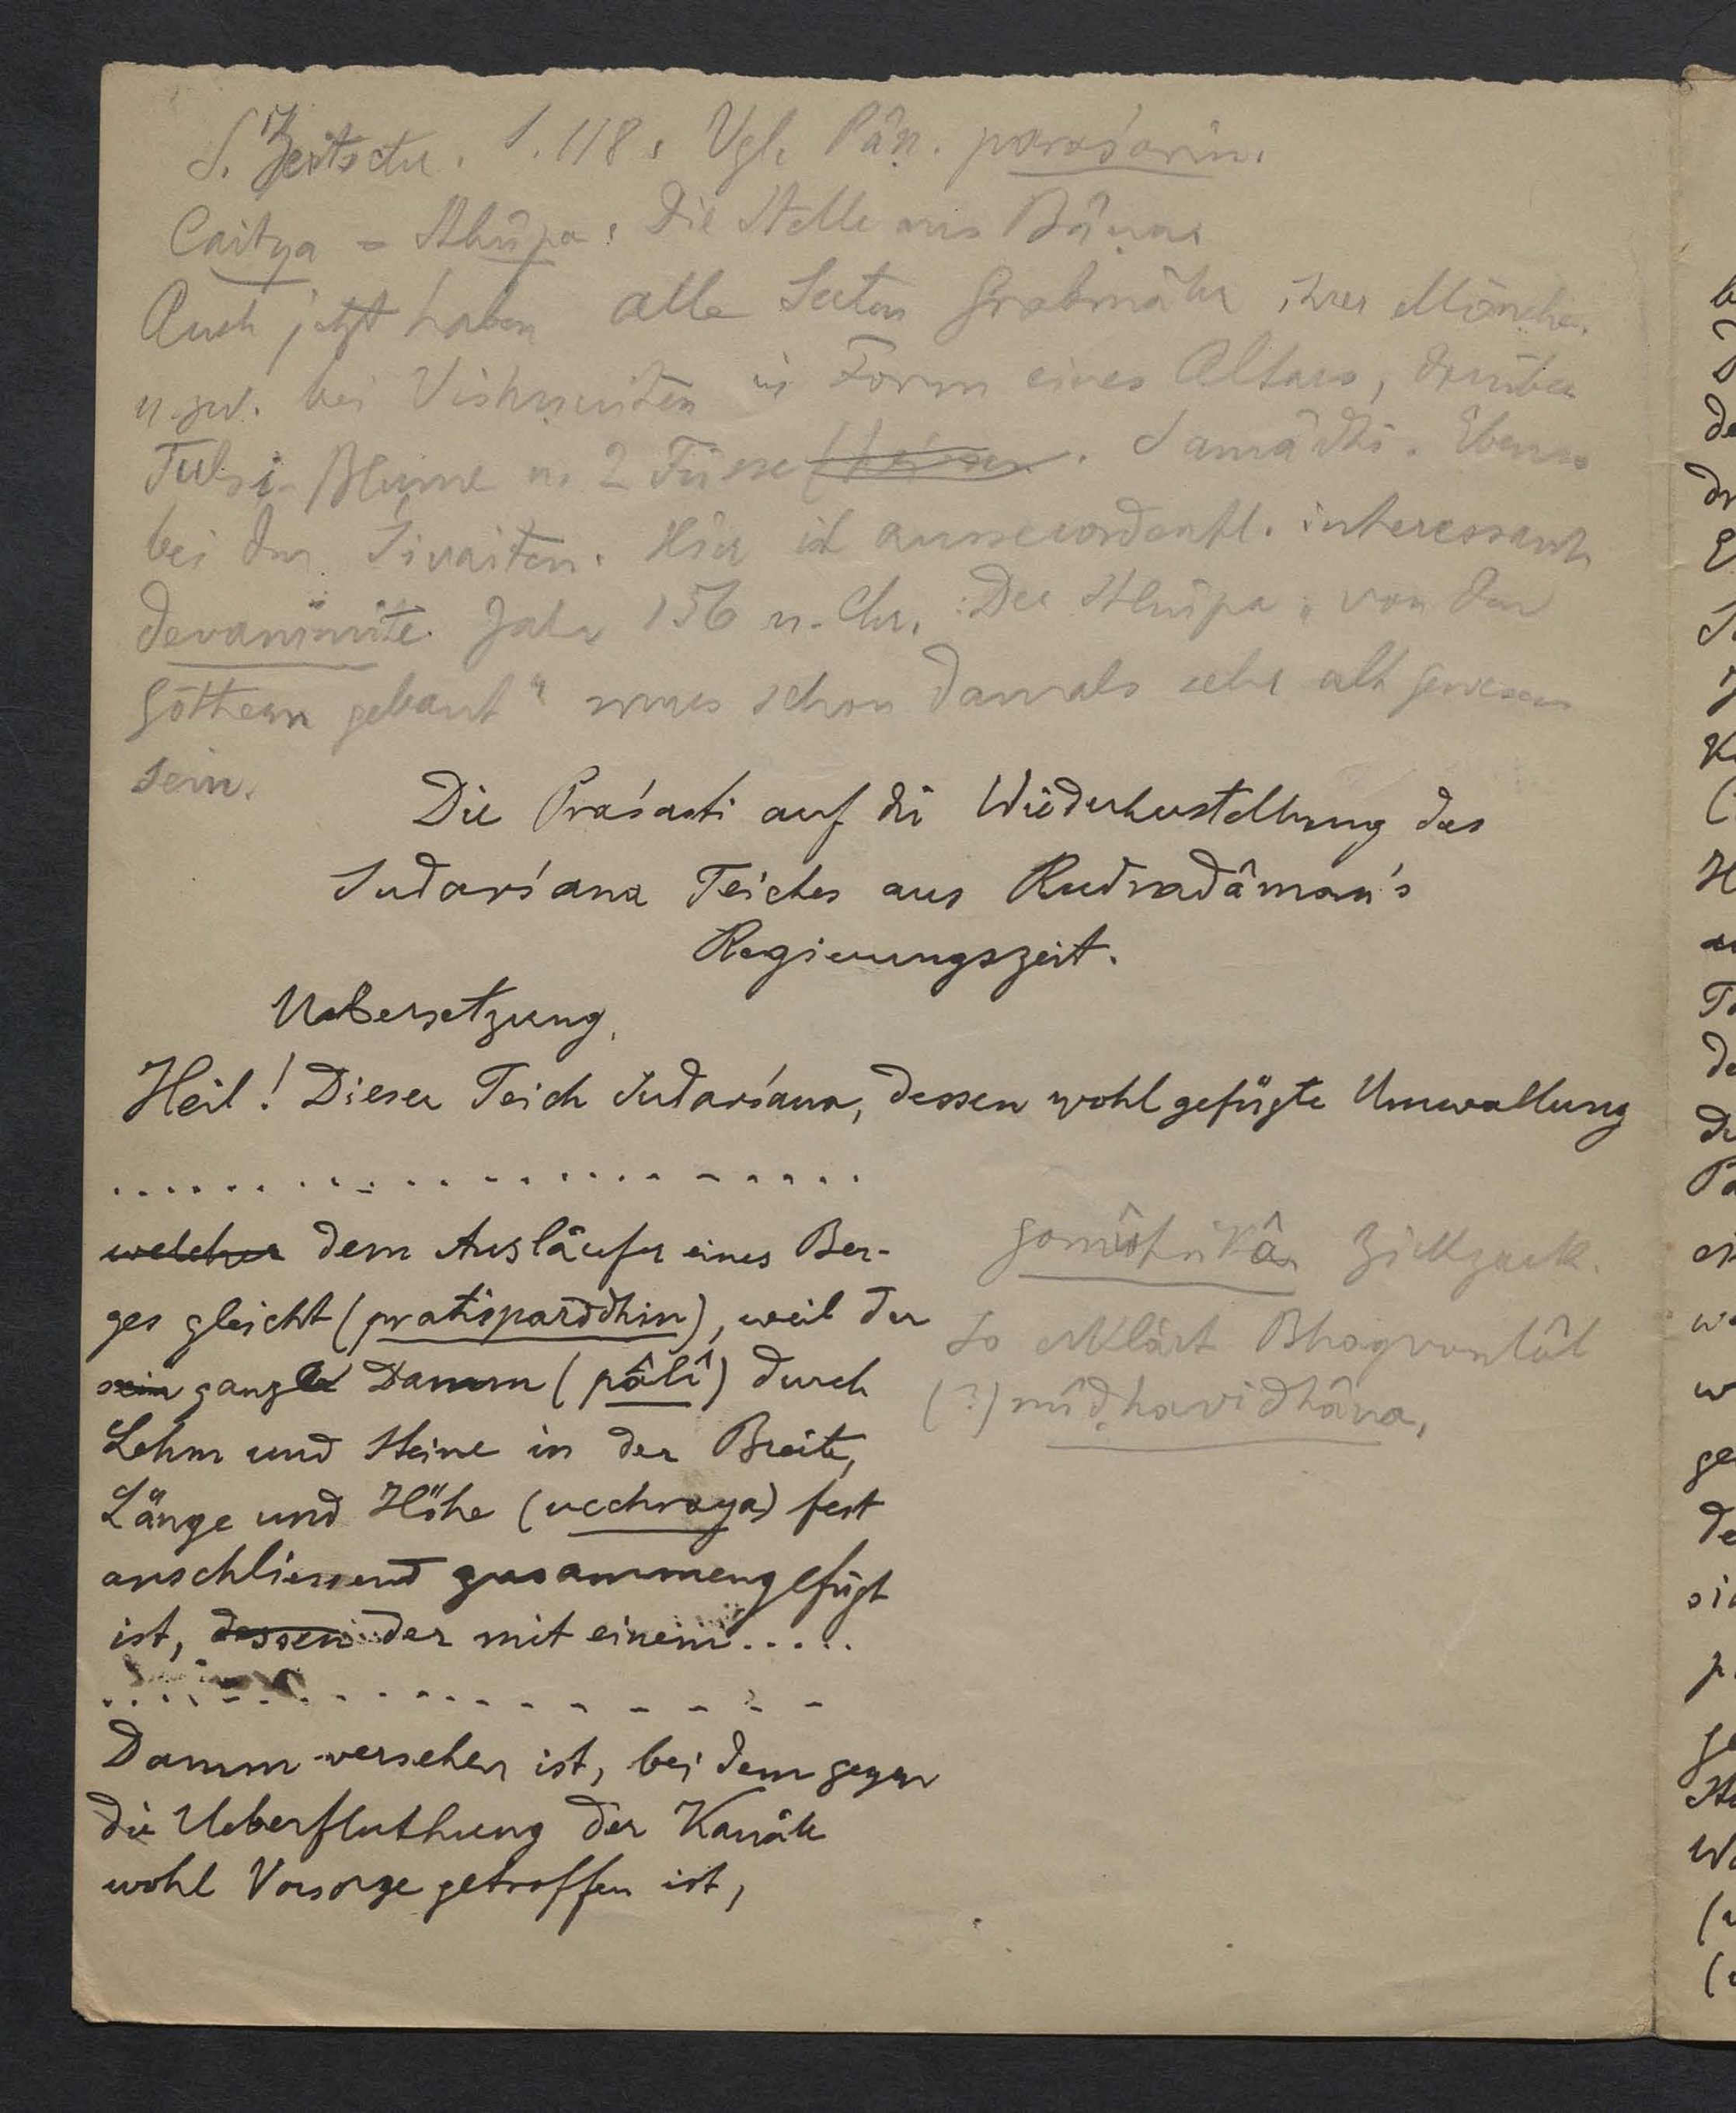 S. Zeitschr. S. 118. Vgl. Pâṇ. parâśarin.
Caitya = Sthûpa. Die Stelle aus Bâṇa
Auch jetzt haben alle Secten Grabmäler ihrer Mönche.
u. zw. bei Vishnuiten in Form eines Altars, darüber
Tulsi-Blume u. 2 Füsse. Samâdhi. Ebenso
bei den Śivaiten. Hier ist ausserordentl. interessant
devanirmite. Jahr 156 n. Chr. Der Sthûpa „von den
Göttern gebaut“ muss schon damals sehr alt gewesen
sein.
Die Praśasti auf die Wiederherstellung des
Sudarśana Teiches aus Rudradâman's
Regierungszeit.
Uebersetzung.
Heil! Dieser Teich Sudarśana, dessen wohlgefügte Umwallung
. . . . . . . . . . . . . . . . . . . .
welcher dem Ausläufer eines Ber-
ges gleicht (pratisparddhin), weil der
sein ganzer Damm (pâlî) durch
Lehm und Steine in der Breite,
Länge und Höhe (ucchraya) fest
anschliessend zusammengefügt
ist, dessen der mit einem . . . . .
. . . . . . . . . . . . . . . . . . . .
Damm versehen ist, bei dem gegen
die Ueberfluthung der Kanäle
wohl Vorsorge getroffen ist,
gomûtrikâ Zickzack.
So erklärt Bhagvanlâl
(?) mîḍhavidhâna,